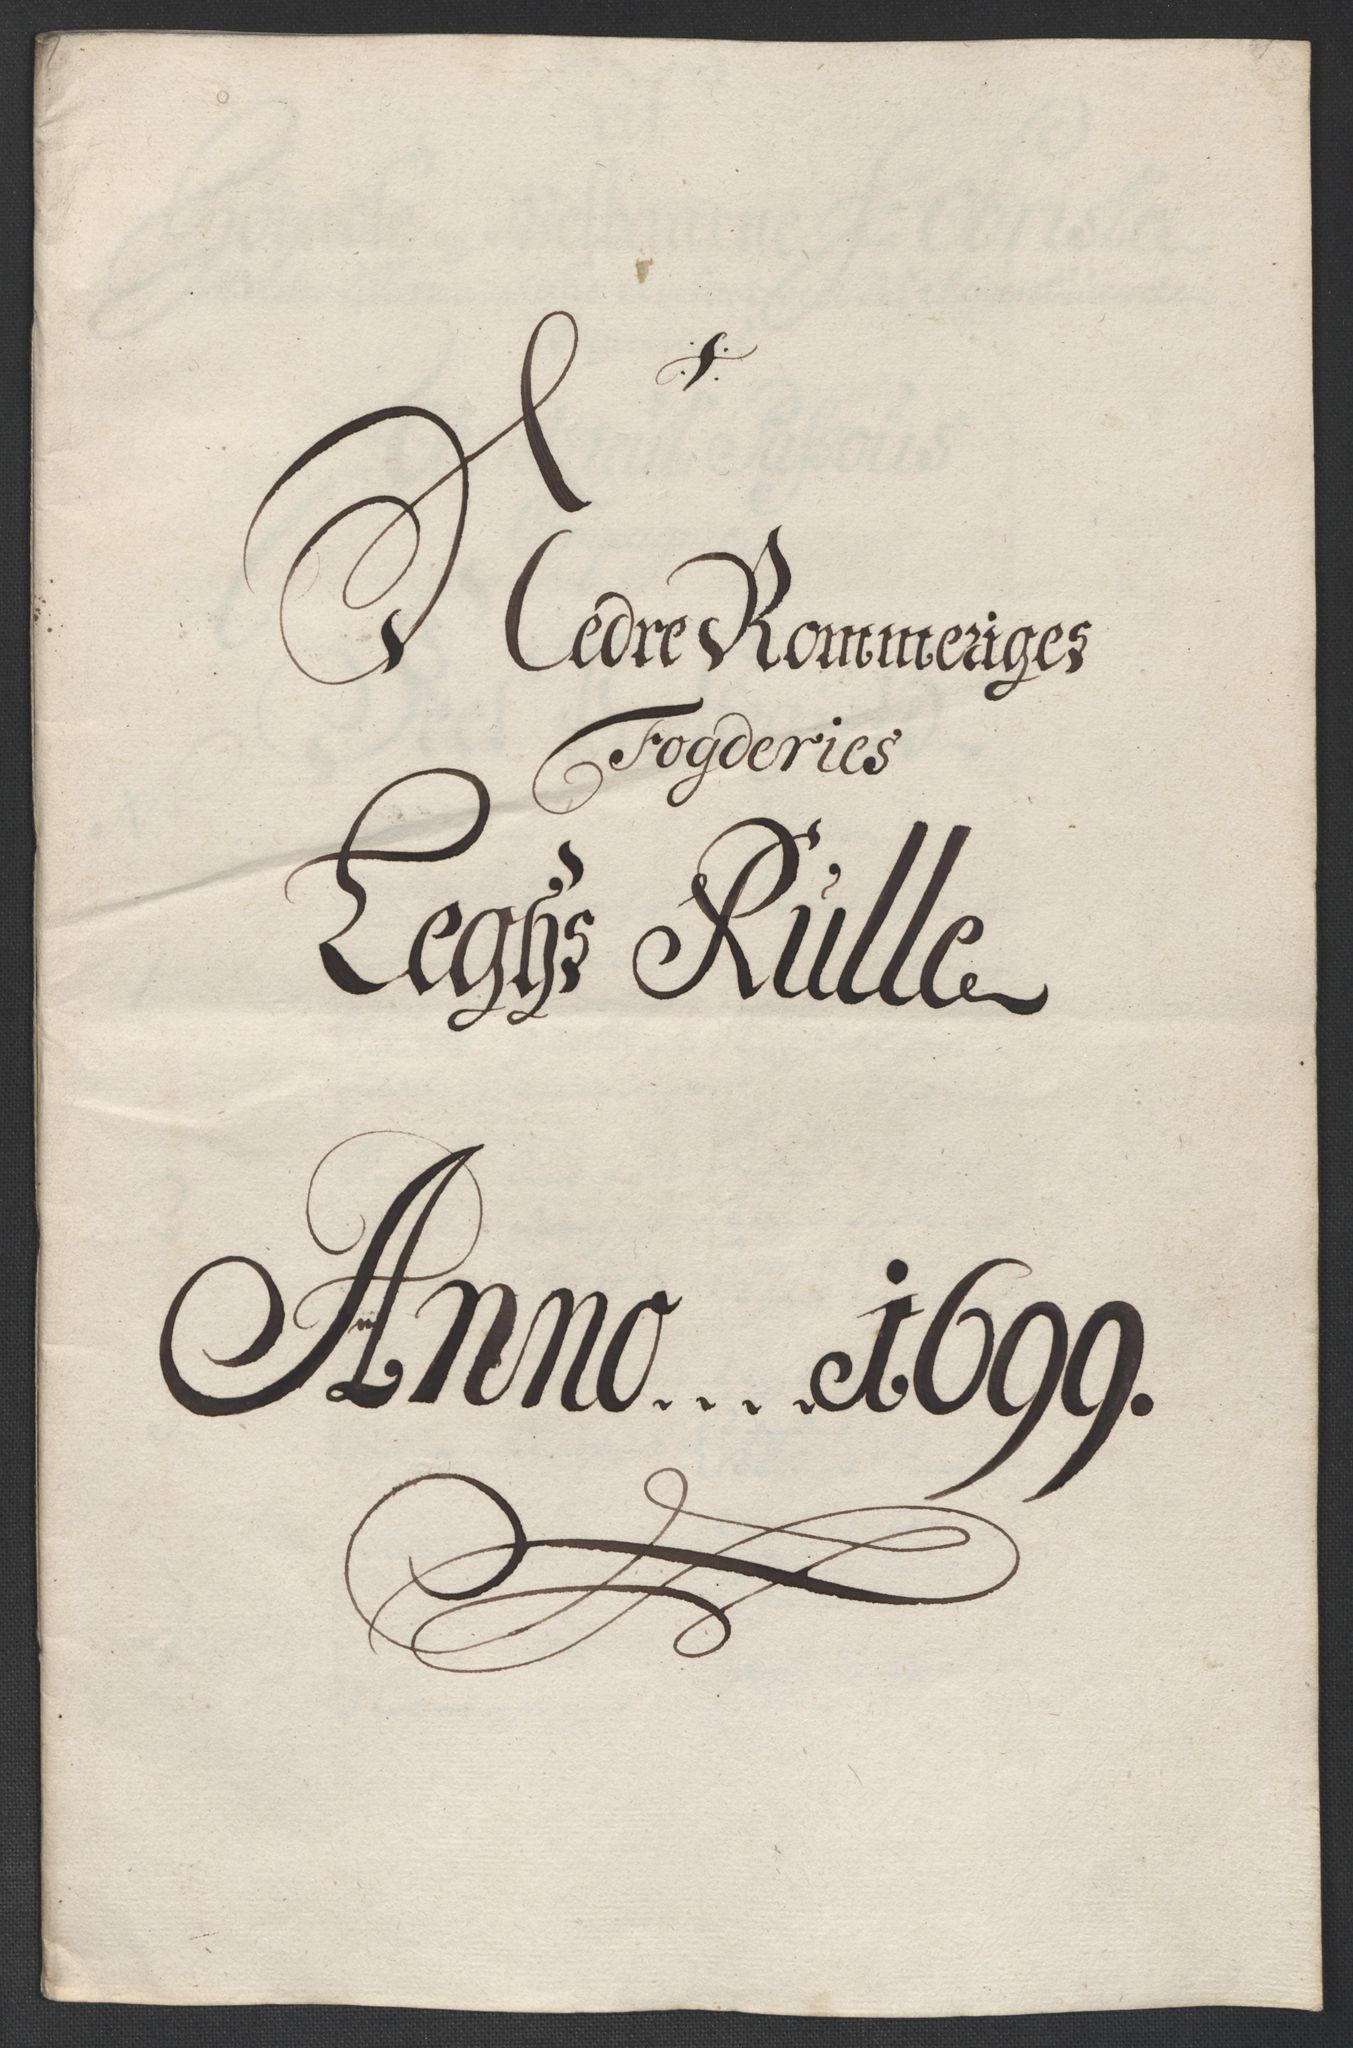 Nedre Rommeriges
Fogderies
Leghs Rulle
Anno....1699.